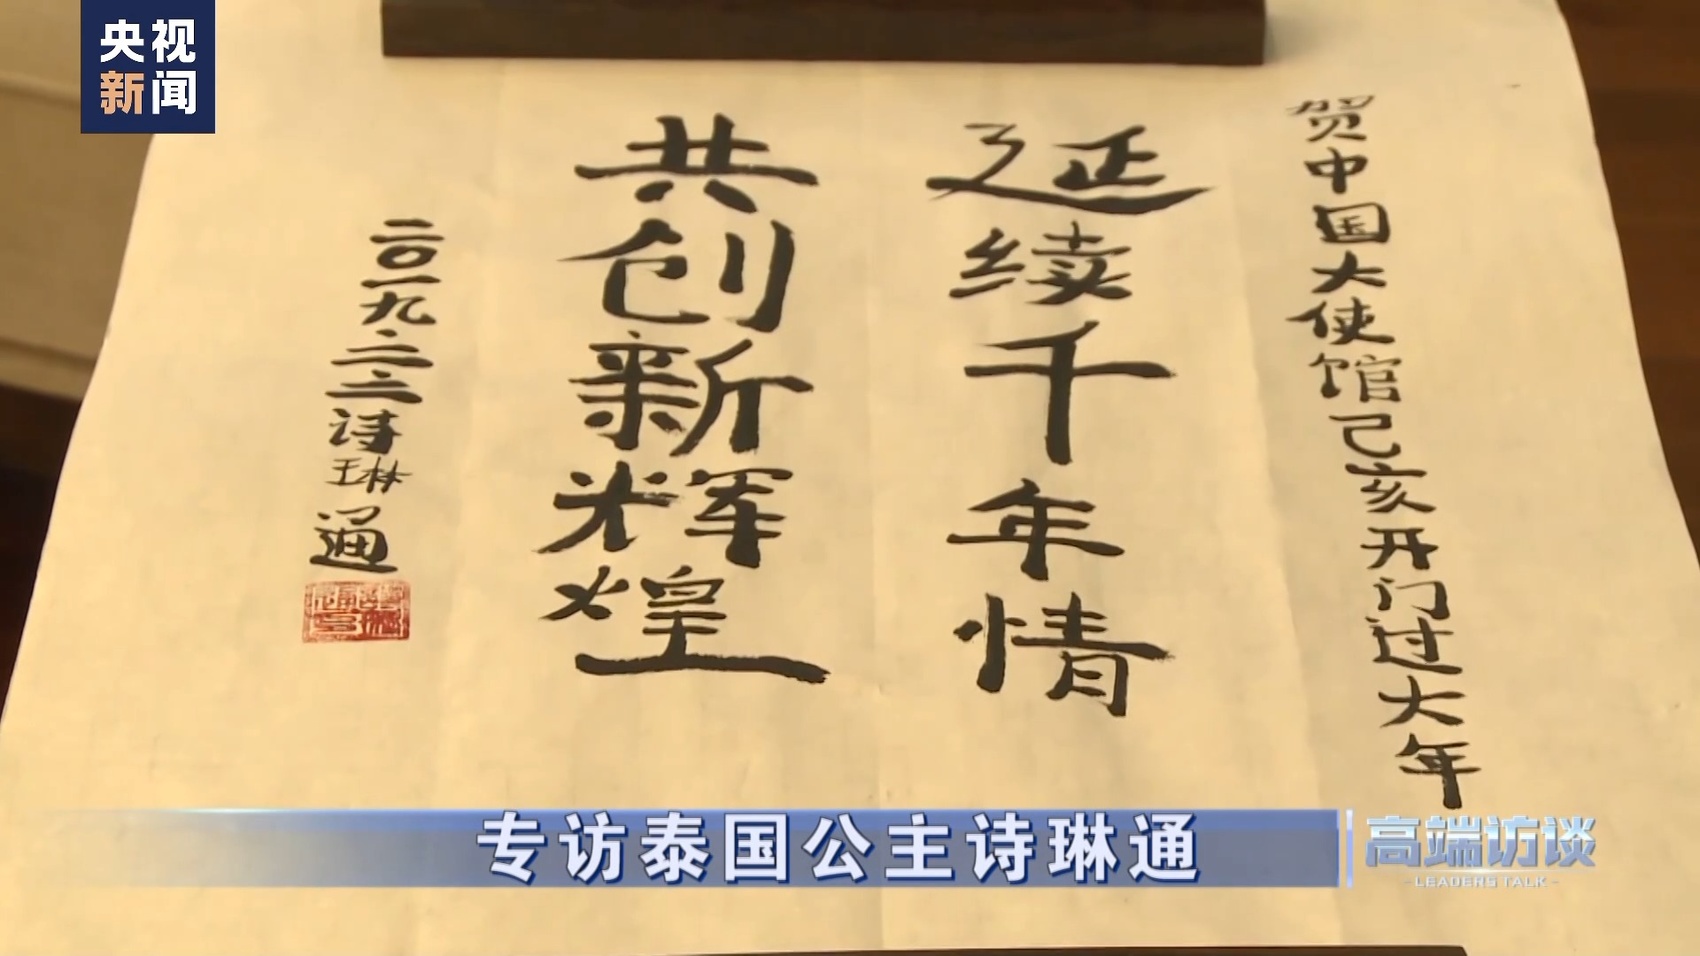 央视
新闻
贺中国大使馆己亥开门过大年
延续千年情
共创新辉煌
二〇一九.二.二诗琳通
专访泰国公主诗琳通
高端访谈
-LEADERS TALK-